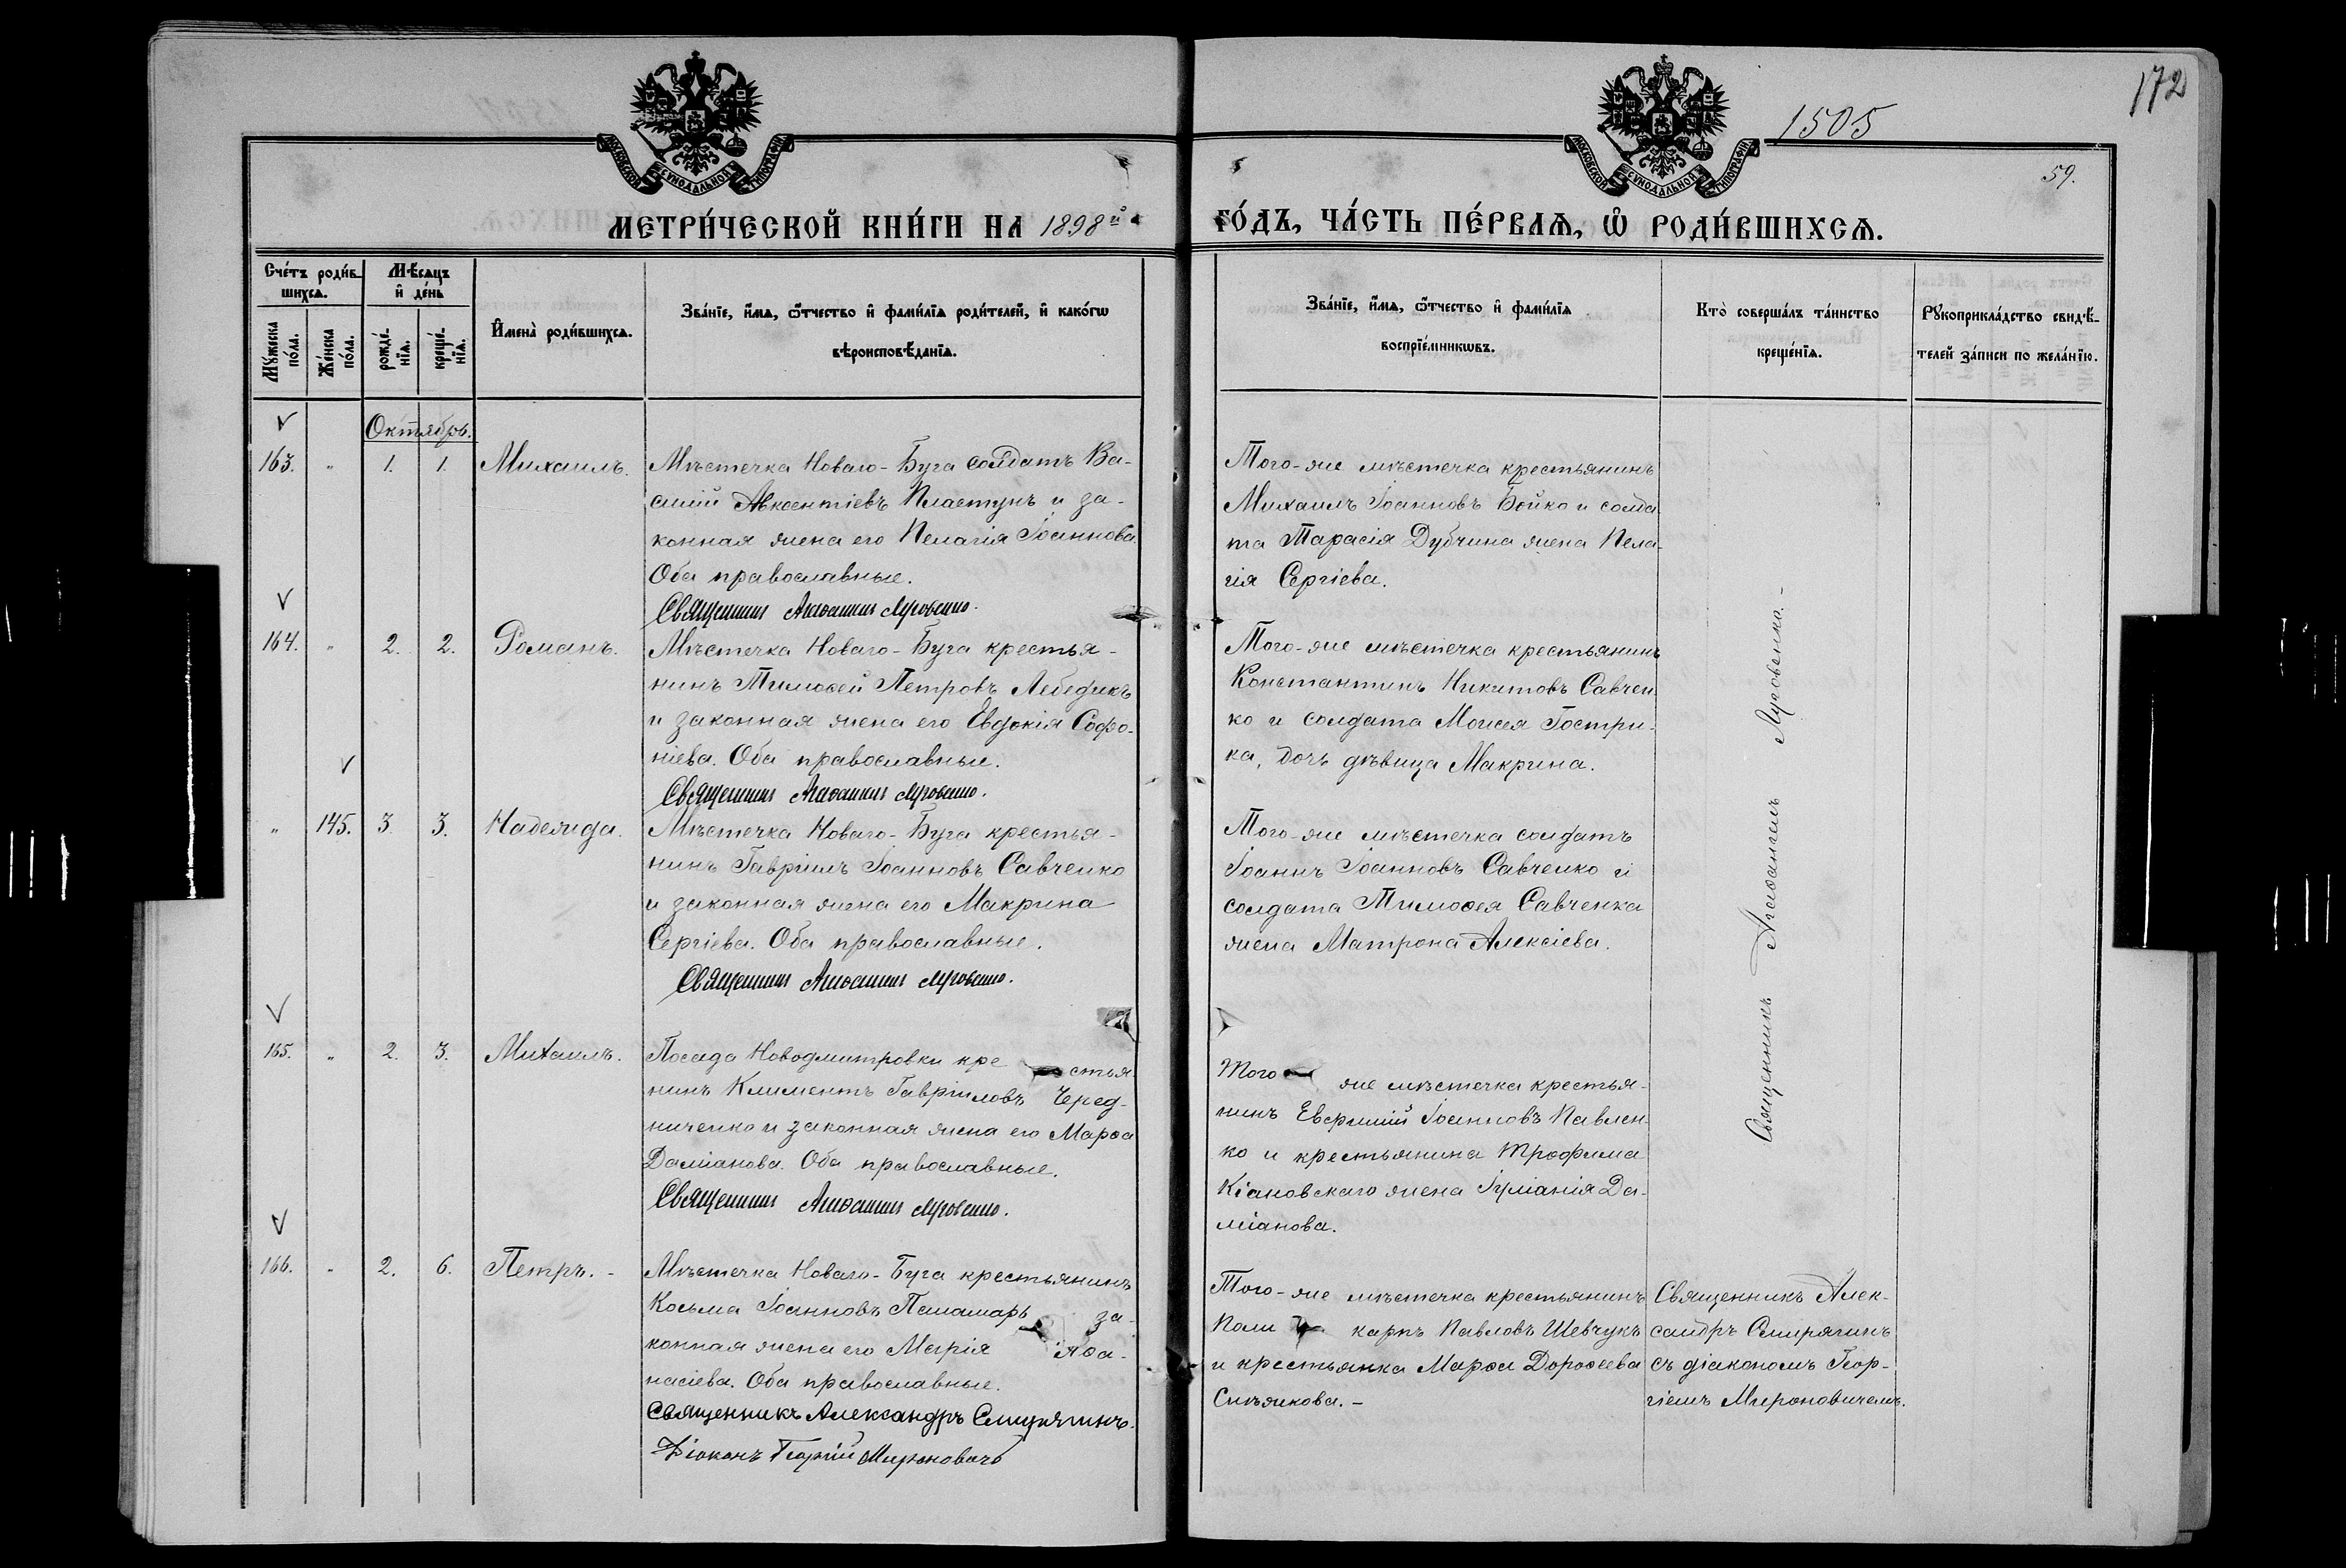 172
1505
59.
МОСКОВСКОЙ СѴНОДАЛЬНОЙ ТИПОГРАФІИ
МОСКОВСКОЙ СѴНОДАЛЬНОЙ ТИПОГРАФІИ
МЕТРИ́ЧЕСКОЙ КНИ́ГИ НА 1898й
ГО́ДЪ, ЧА́СТЬ ПЕ́РВАѦ, Ѡ РОДИ́ВШИХСѦ.
Сче́тъ роди́в-
шихсѧ.
Мѣ́сѧцъ
и҆ де́нь
Мꙋ́жеска
по́ла.
Же́нска
по́ла.
рожде́-
нїѧ.
креще́-
нїѧ.
И҆мена̀ роди́вшихсѧ.
Зва́нїе, и҆́мѧ, ѻ҆́тчество и҆ фами́лїѧ роди́телей, и҆ како́гѡ
вѣроисповѣ́данїѧ.
Зва́нїе, и҆́мѧ, ѻ҆́тчество и҆ фами́лїѧ
воспрїе́мникѡвъ.
Кто̀ соверша́лъ та́инство
креще́нїѧ.
Рꙋкоприкла́дство свидѣ́-
телей за́писи по жела́нїю.
Октябрь.
163. " 1. 1. Михаилъ.
Мѣстечка Новаго-Буга солдатъ Ва-
силій Авксентіевъ Пластунъ и за-
конная жена его Пелагія Іоаннова.
Оба православные.
Священникъ Агаѳангелъ Луговенко.
Того-же мѣстечка крестьянинъ
Михаилъ Іоанновъ Бойко и солда-
та Тарасія Дубчина жена Пела-
гія Сергіева.
164. " 2. 2. Романъ.
Мѣстечка Новаго-Буга крестья-
нинъ Тимоѳей Петровъ Лебедикъ
и законная жена его Евдокія Софо-
ніева. Оба православные.
Священникъ Агаѳангелъ Луговенко.
Того-же мѣстечка крестьянинъ
Константинъ Никитовъ Савчен-
ко и солдата Моисея Гостри-
ка, дочь дѣвица Макрина.
" 145. 3. 3. Надежда.
Мѣстечка Новаго-Буга крестья-
нинъ Гавріилъ Іоанновъ Савченко
и законная жена его Макрина
Сергіева. Оба православные.
Священникъ Агаѳангелъ Луговенко.
Того-же мѣстечка солдатъ
Іоаннъ Іоанновъ Савченко и
солдата Тимоѳея Савченка
жена Матрона Алексіева.
165. " 2. 3. Михаилъ.
Посада Новодмитровки крестья-
нинъ Климентъ Гавріиловъ Черед-
ниченко и законная жена его Марѳа
Даміанова. Оба православные.
Священникъ Агаѳангелъ Луговенко.
Того же мѣстечка крестья-
нинъ Евфимій Іоанновъ Павлен-
ко и крестьянина Трофима
Кіановскаго жена Іуліанія Да-
міанова.
Священникъ Агаѳангелъ Луговенко.-
166. " 2. 6. Петръ.-
Мѣстечка Новаго-Буга крестьянинъ
Косьма Іоанновъ Паламарь за-
конная жена его Марія Аѳа-
насіева. Оба православные.
Священникъ Александръ Смирягинъ.
Діаконъ Георгій Мироновичъ
Того-же мѣстечка крестьянинъ
Поликарпъ Павловъ Шевчукъ
и крестьянка Марѳа Дороѳеева
Снѣжкова.-
Священникъ Алек-
сандръ Смирягинъ
съ діакономъ Геор-
гіемъ Мироновичемъ.